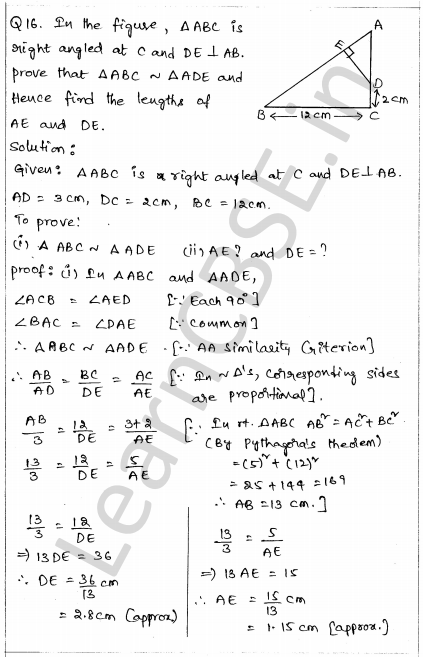 Q16. In the figure, ΔABC is
right angled at C and DE ⊥ AB.
prove that ΔABC ~ ΔADE and
Hence find the lengths of
AE and DE.
A
E
D
2cm
B
12cm
C
Solution:
Given: ΔABC is a right angled at C and DE⊥AB.
AD = 3cm, DC = 2cm, BC = 12cm.
To prove:
(i) Δ ABC ~ ΔADE (ii) AE? and DE=?
proof: (i) In ΔABC and ΔADE,
∠ACB = ∠AED [∵ Each 90°]
∠BAC = ∠DAE [∵ Common]
∴ ΔABC ~ ΔADE [∵ AA Similarity Criterion]
∴ AB/AD = BC/DE = AC/AE [∵ In ~Δ's, corresponding sides
are proportional].
AB/3 = 12/DE = 3+2/AE [∵ In rt. ΔABC AB² = AC² + BC²
(By Pythagora's theorem)
13/3 = 12/DE = 5/AE
= (5)² + (12)²
= 25 + 144 = 169
∴ AB = 13 cm.]
13/3 = 12/DE
⇒ 13DE = 36
∴ DE = 36/13 cm
= 2.8cm (approx)
13/3 = 5/AE
⇒ 13 AE = 15
∴ AE = 15/13 cm
= 1.15 cm [approx.]
LearnCBSE.in